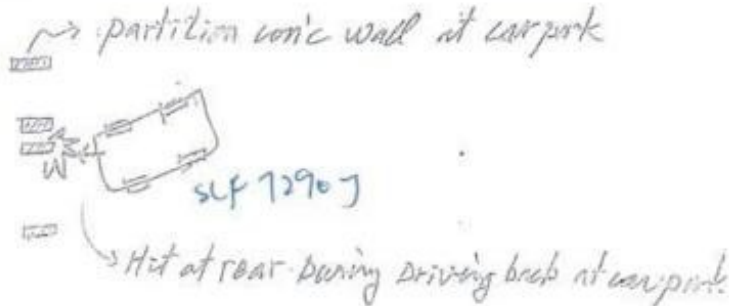 partition con'c wall at car park
SLF 7290J
Hit at rear During Driving back at car park.